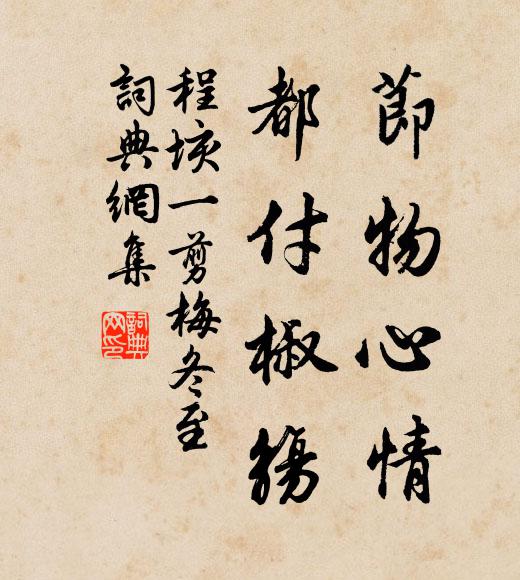 節物心情
都付椒觴
程垓一剪梅冬至
詞典網集
詞典
网印